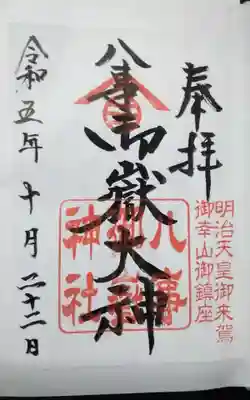 奉拝
明治天皇御来駕
御幸山御鎮座
八事御嶽大神
八事御嶽神社
令和五年十月二十二日